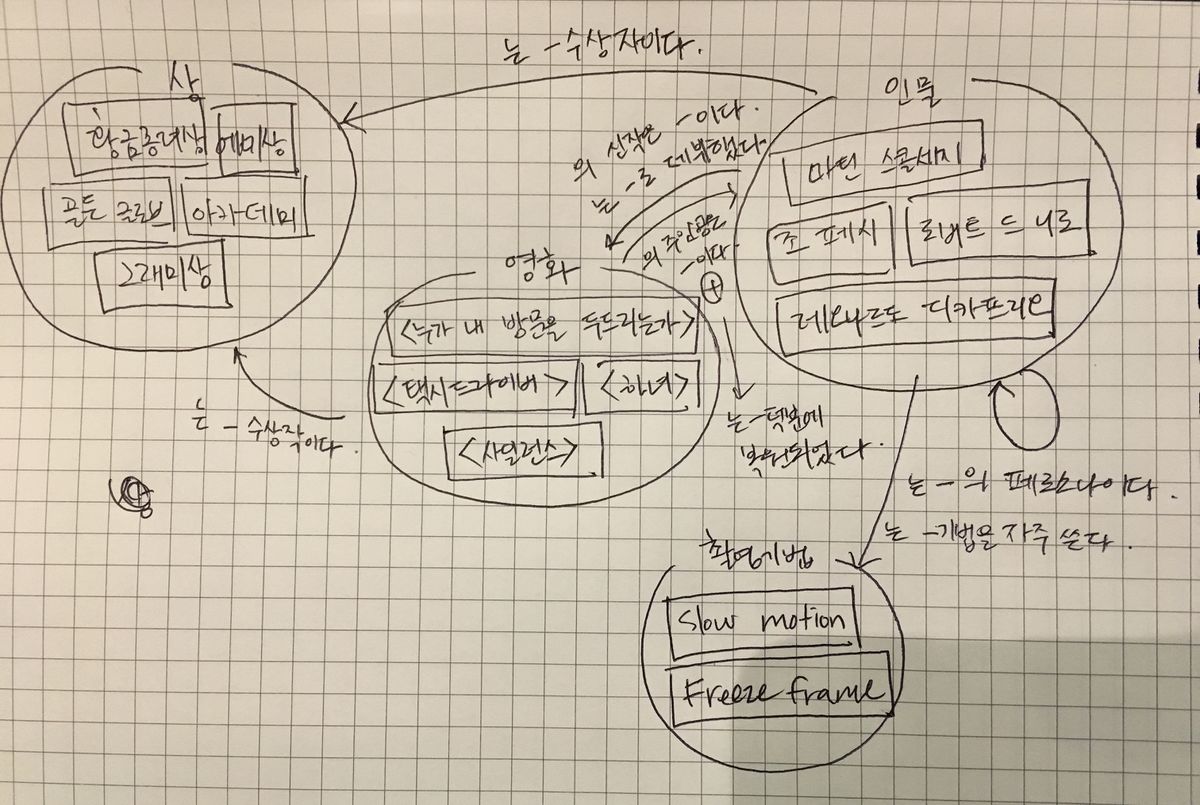 는 -수상자이다.
상
황금종려상 에미상
골든 글로브 아카데미
그래미상
인물
마틴 스콜세지
조 페시 로버트 드 니로
레오나르도 디카프리오
의 신작은 -이다.
는 -로 데뷔했다.
의 주인공은
-이다
영화
<누가 내 방문을 두드리는가>
<택시드라이버> <하녀>
<사일런스>
는 - 수상작이다.
는 -덕분에
복원되었다.
는 - 의 페르소나이다.
는 -기법을 자주 쓴다.
촬영기법
Slow motion
Freeze frame